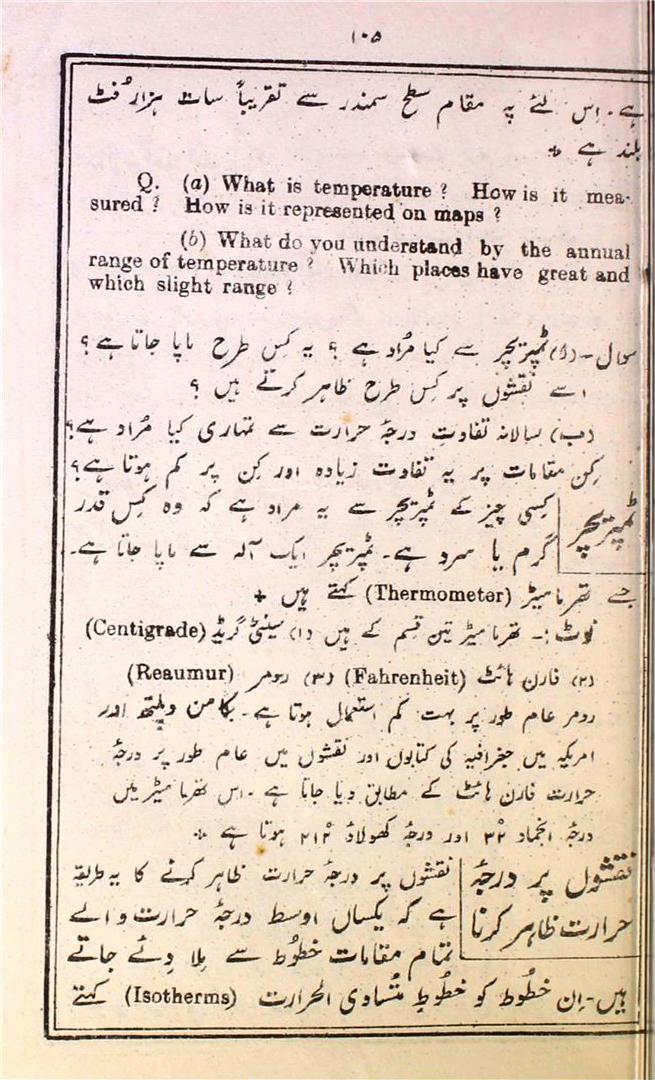 ۱۰۵
ہے۔ اِس لئے یہ مقام سطح سمندر سے تقریباً سات ہزار فُٹ
بلند ہے +
Q. (a) What is temperature ? How is it mea-
sured ? How is it represented on maps ?
(b) What do you understand by the annual
range of temperature ? Which places have great and
which slight range ?
سوال۔ (ا) ٹمپریچر سے کیا مُراد ہے ؟ یہ کِس طرح ماپا جاتا ہے ؟
اسے نقشوں پر کِس طرح ظاہر کرتے ہیں ؟
(ب) سالانہ تفاوتِ درجۂ حرارت سے تمہاری کیا مُراد ہے؟
کِن مقامات پر یہ تفاوت زیادہ اور کِن پر کم ہوتا ہے؟
ٹمپریچر
کِسی چیز کے ٹمپریچر سے یہ مراد ہے کہ وہ کِس قدر
گرم یا سرد ہے۔ ٹمپریچر ایک آلہ سے ماپا جاتا ہے۔
جسے تھرمامیٹر (Thermometer) کہتے ہیں +
نوٹ :۔ تھرمامیٹر تین قِسم کے ہیں (۱) سینٹی گریڈ (Centigrade)
(۲) فارن ہائٹ (Fahrenheit) (۳) رومر (Reaumur)
رومر عام طور پر بہت کم استعمال ہوتا ہے۔ کامن ویلتھ اور
امریکہ میں جغرافیہ کی کتابوں اور نقشوں میں عام طور پر درجۂ
حرارت فارن ہائٹ کے مطابق دیا جاتا ہے۔ اس تھرمامیٹر میں
درجۂ انجماد ۳۲° اور درجۂ کھولاؤ ۲۱۲° ہوتا ہے +
نقشوں پر درجۂ
حرارت ظاہر کرنا
نقشوں پر درجۂ حرارت ظاہر کرنے کا یہ طریقہ
ہے کہ یکساں اوسط درجۂ حرارت والے
تمام مقامات خطُوط سے مِلا دِئے جاتے
ہیں۔ اِن خطُوط کو خطُوطِ مُتساوی الحرارت (Isotherms) کہتے